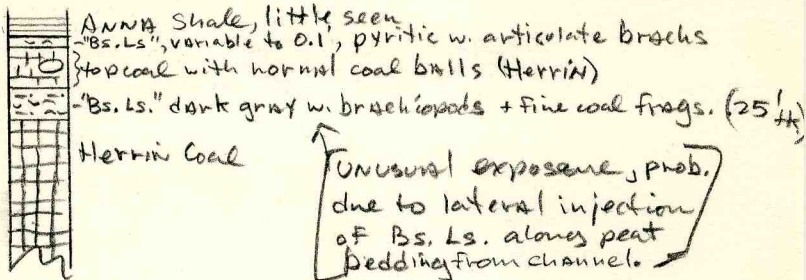 ANNA Shale, little seen
-"Bs. Ls", variable to 0.1', pyritic w. articulate brachs
}topcoal with normal coal balls (Herrin)
-"Bs. Ls." dark gray w. brachiopods + fine coal frags.
Herrin Coal
Unusual exposure, prob.
due to lateral injection
of Bs. Ls. along peat
bedding from channel.